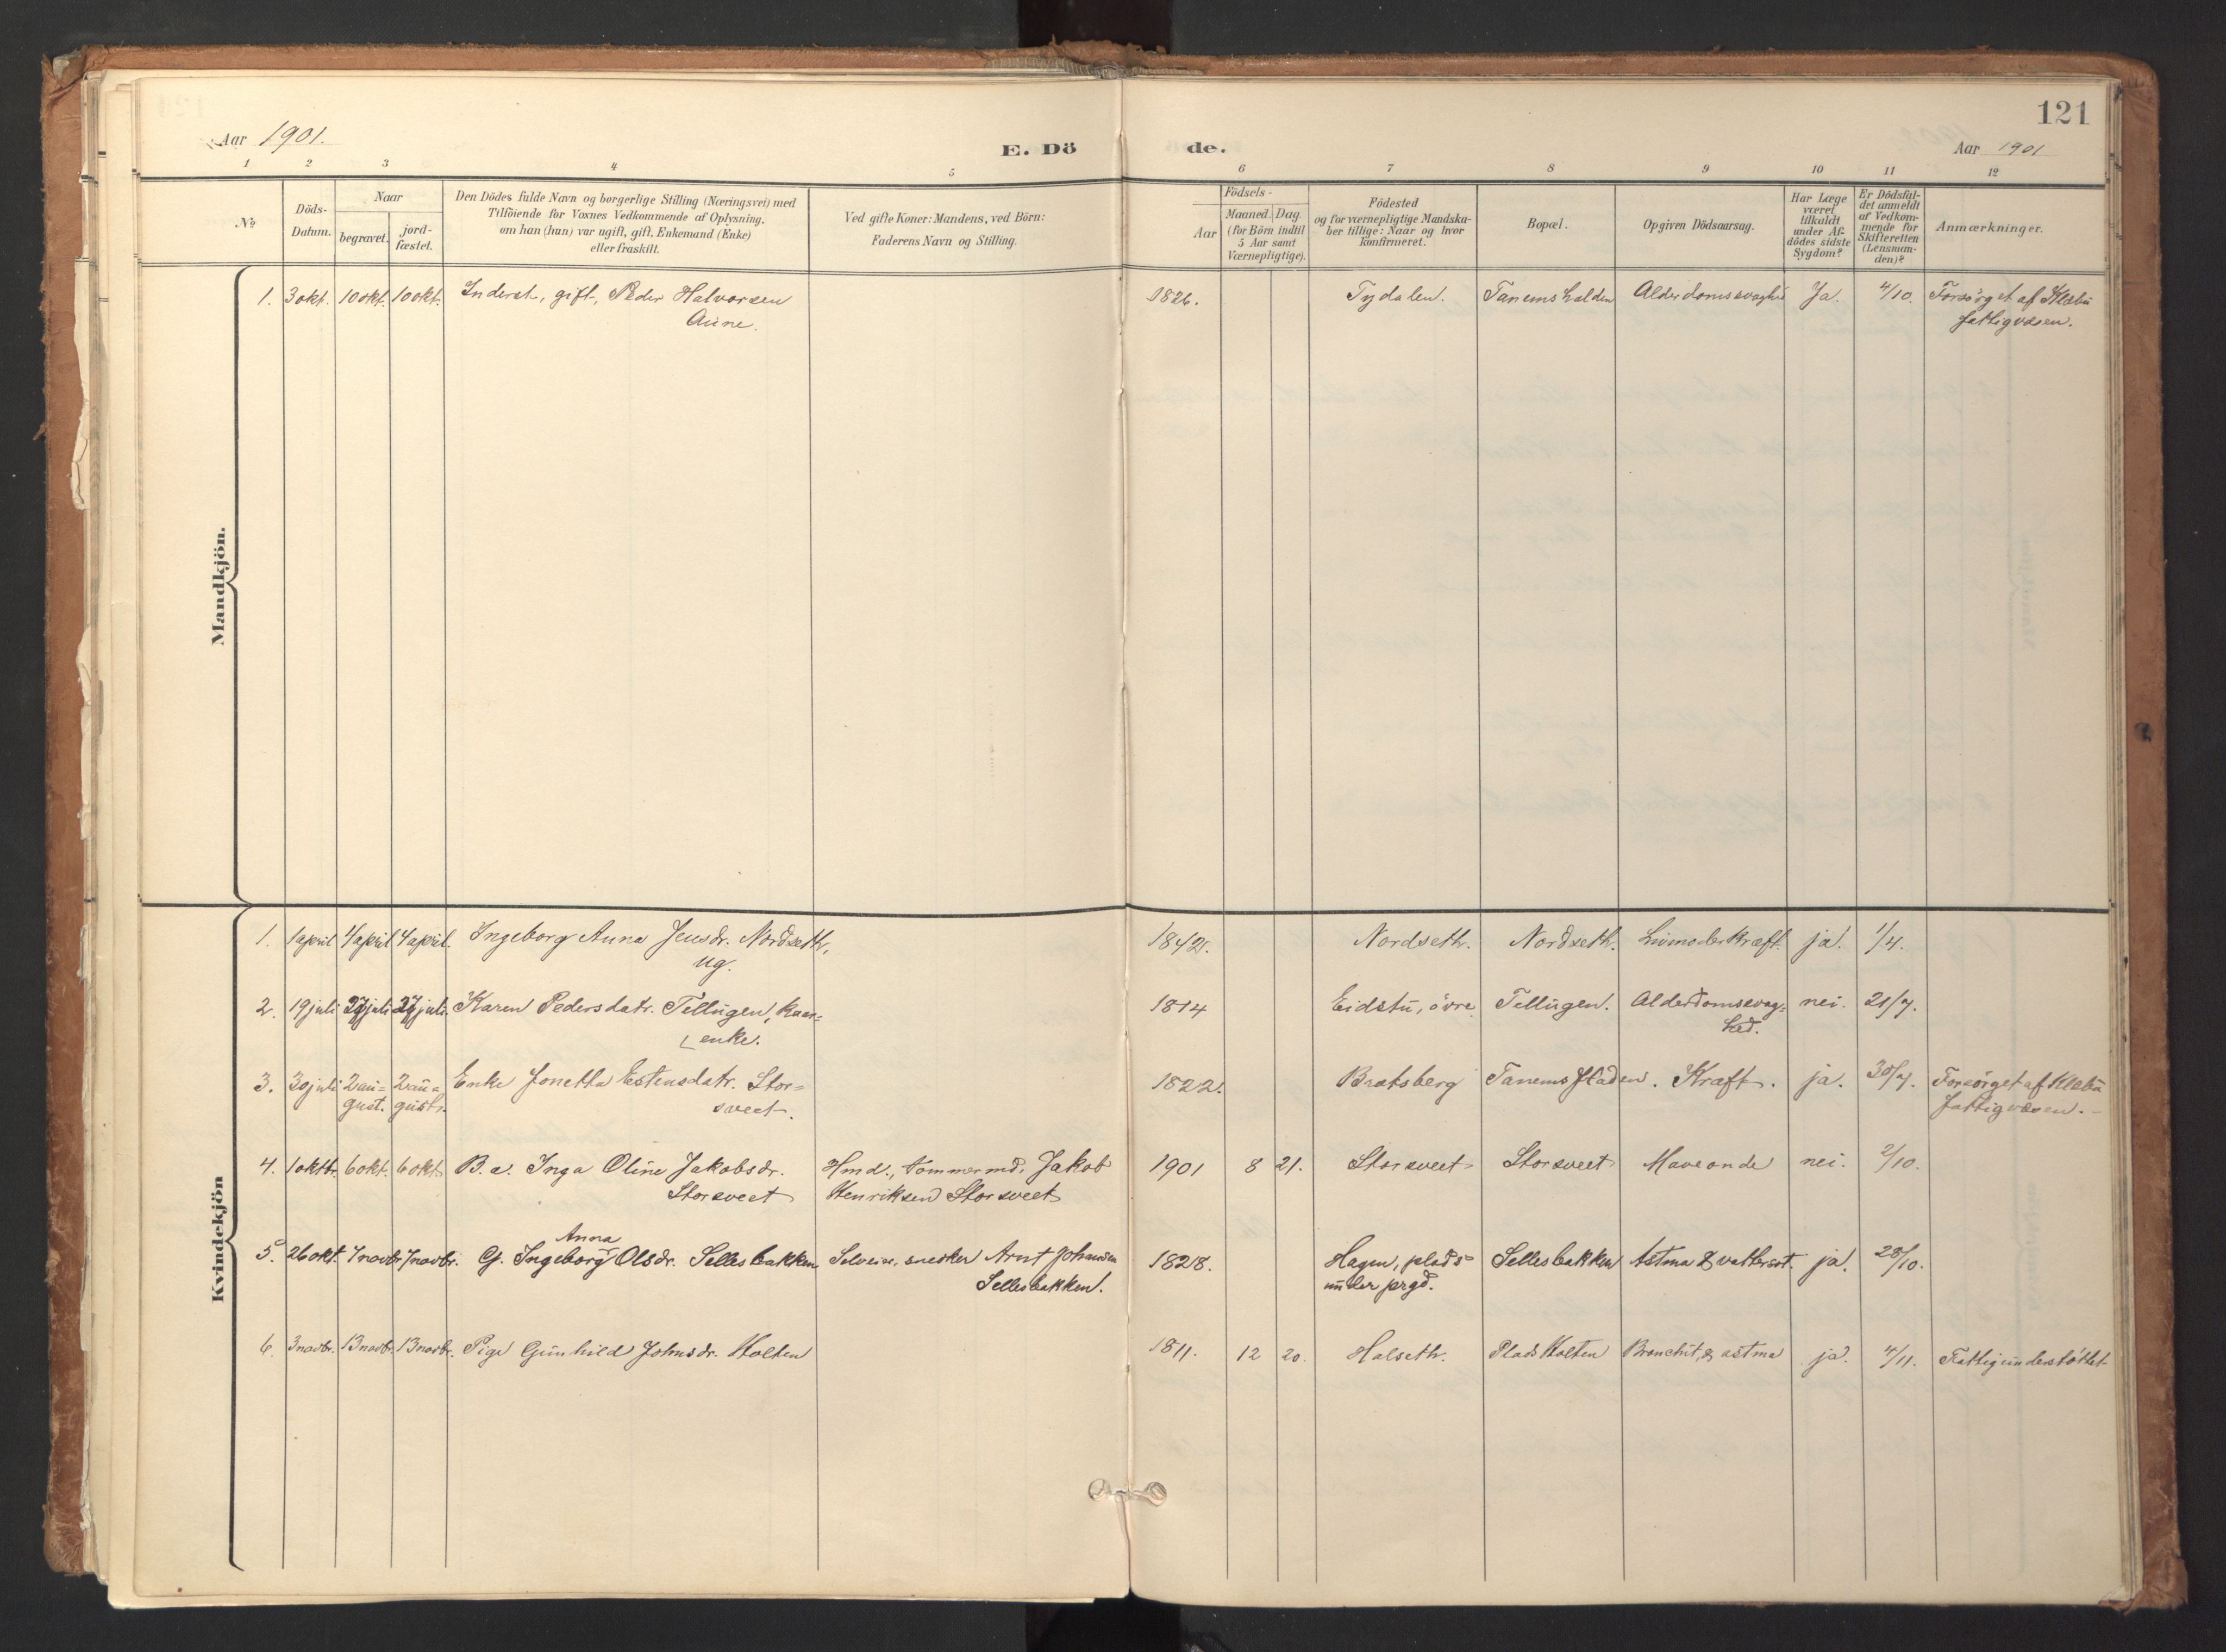 121
Aar 1901.
E. Dö
de.
Aar 1901
1 2 3 4 5 6 7 8 9 10 11 12
No
Döds-
Datum.
Naar
begravet.
jord-
fæstet.
Den Dödes fulde Navn og borgerlige Stilling (Næringsvei) med
Tilföiende for Voxnes Vedkommende af Oplysning,
om han (hun) var ugift, gift, Enkemand (Enke)
eller fraskilt.
Ved gifte Koner: Mandens, ved Börn:
Faderens Navn og Stilling.
Födsels-
Aar
Maaned. Dag.
(for Börn indtil
5 Aar samt
Værnepligtige).
Födested
og for værnepligtige Mandska-
ber tillige: Naar og hvor
konfirmeret.
Bopæl.
Opgiven Dödsaarsag.
Har Læge
været
tilkaldt
under Af-
dödes sidste
Sygdom?
Er Dödsfal-
det anmeldt
af Vedkom-
mende for
Skifteretten
(Lensman-
den)?
Anmærkninger.
Mandkjön.
1. 3 okt. 10 okt. 10 okt. Inderst, gift, Peder Halvorsen 1826. Tydalen. Tanemshalden Ja. 4/10. Forsörget af Klæbu
Aune. fattigvæsen.
Kvindekjön
1. 1 april 4 april 4 april. Ingeborg Anna Jensdr. Nordseth, 1842. Nordseth. Nordseth. Livmoderkræft. ja. 1/4.
ug.
2. 19 juli 27 juli 27 juli. Karen Pedersdatr. Tellugen, kaar= 1814 Eidstu, övre Tellugen. Alderdomssvag= nei. 21/7.
enke. hed.
3. 30 juli 2 au= 2 au= Enke Jonetta Estensdatr. Stor= 1822. Bratsberg Tanemsfladen. Kræft. ja. 30/7. Forsörget af Klæbu
gust. gust. sveet. fattigvæsen.-
4. 1 oktbr. 6 okt. 6 okt. B.a. Inga Oline Jakobsdr. Hmd., tömmermd. Jakob 1901 8 21. Storsveet Storsveet Maveonde nei. 2/10.
Storsveet Henriksen Storsveet
Anna
5. 26 okt. 7 novbr. 7 novbr. G. Ingeborg Olsdr. Sellesbakken Selveier, snedker Arnt Johansen 1828. Hagen, plads Sellesbakken Astma & vattersot. ja. 28/10.
Sellesbakken. under prgd.
6. 3 novbr. 13 novbr. 13 novbr. Pige Gunhild Johnsdr. Holten 1811. 12 20. Halseth. Plads Holten Bronchit. & astma ja. 4/11. Fattigunderstöttet